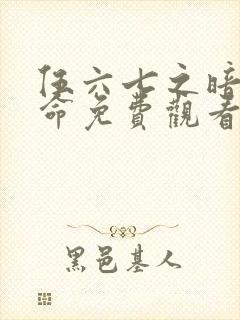 伍六七之暗
命免費觀看
黑邑基人